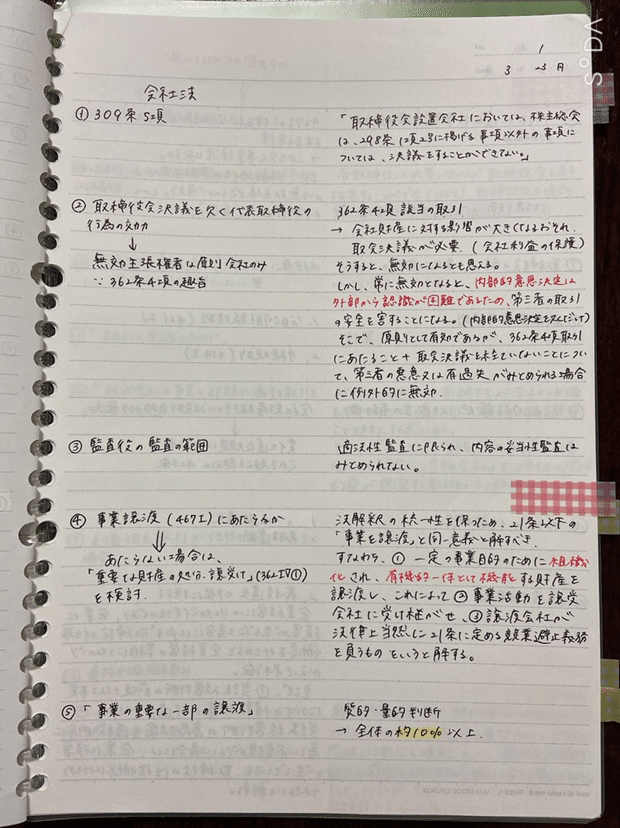 SODA
1
3 23 月
会社法
① 309条5項
「取締役会設置会社においては、株主総会
は、298条1項2号に掲げる事項以外の事項に
ついては、決議をすることができない。」
② 取締役会決議を欠く代表取締役の
行為の効力
↓
無効主張権者は原則会社のみ
∵ 362条4項の趣旨
362条4項該当の取引
→ 会社財産に対する影響が大きくなるおそれ
取会決議が必要 (会社利益の保護)
そうすると、無効になるとも思える。
しかし、常に無効となると、内部的意思決定は
外部から認識が困難であるため、第三者の取引
の安全を害することになる。(内部的意思決定を欠くにすぎず)
そこで、原則として有効であるが、362条4項取引
にあたること + 取会決議を経ていないことについ
て、第三者の悪意又は有過失がみとめられる場合
に例外的に無効.
③ 監査役の監査の範囲
適法性監査に限られ、内容の妥当性監査は
みとめられない。
④ 事業譲渡 (467Ⅰ) にあたらるか
⇓
あたらない場合は、
「重要な財産の処分、譲受け」(362Ⅳ①)
を検討.
法解釈の統一性を保つため、21条以下の
「事業を譲渡」と同一意義と解すべき.
すなわち、① 一定の事業目的のために組織
化され、有機的一体として機能する財産を
譲渡し、これによって ② 事業活動を譲受
会社に受け継がせ、③ 譲渡会社が
法律上当然に21条に定める競業避止義務
を負うもの というと解する。
⑤ 「事業の重要な一部の譲渡」
質的・量的判断
→ 全体の約10%以上.